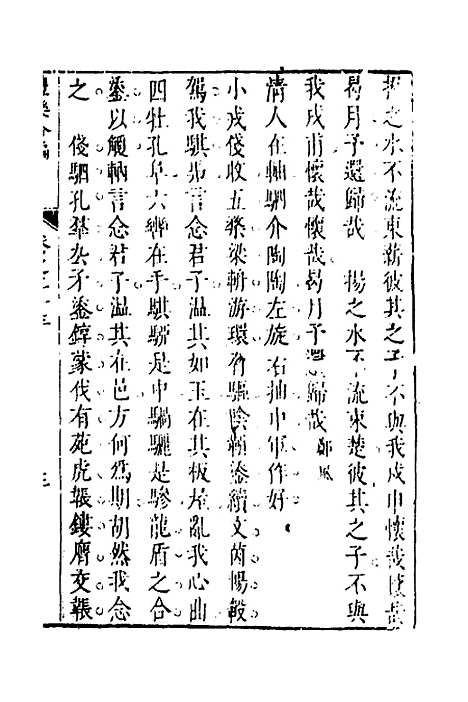 揚之水不流東薪彼其之子不與我戍申懷哉懷哉
曷月予還歸哉　揚之水不流東楚彼其之子不與
我戍甫懷哉懷哉曷月予還歸哉 鄭風
清人在軸駟介陶陶左旋右抽中軍作好
小戎俴收五楘梁輈游環脅驅陰靷鋈續文茵暢轂
駕我騏馵言念君子溫其如玉在其板屋亂我心曲
四牡孔阜六轡在手騏駵是中騧驪是驂龍盾之合
鋈以觼軜言念君子溫其在邑方何爲期胡然我念
之　俴駟孔羣厹矛鋈錞蒙伐有苑虎韔鏤膺交韔
三